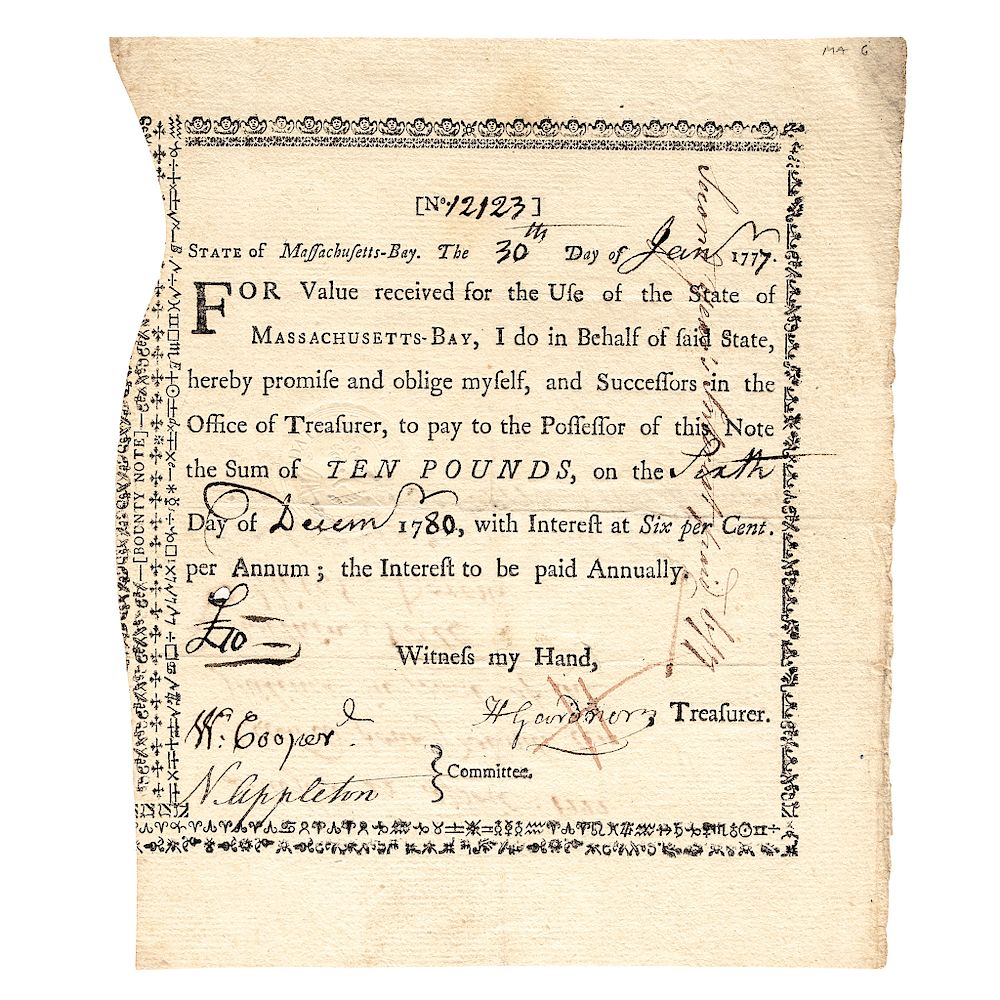 MA G
[No. 12123]
STATE of Maſſachuſetts-Bay. The 30th Day of Jan 1777.
FOR Value received for the Uſe of the State of
MASSACHUSETTS-BAY, I do in Behalf of ſaid State,
hereby promiſe and oblige myſelf, and Succeſſors in the
Office of Treaſurer, to pay to the Poſſeſſor of this Note
the Sum of TEN POUNDS, on the Sixth
Day of Decemr 1780, with Intereſt at Six per Cent.
per Annum; the Intereſt to be paid Annually.
£10
Witneſs my Hand,
HGardner Treaſurer.
Wm. Cooper
N. Appleton
Committee.
[BOUNTY NOTE]
Second year's Intereſt paid